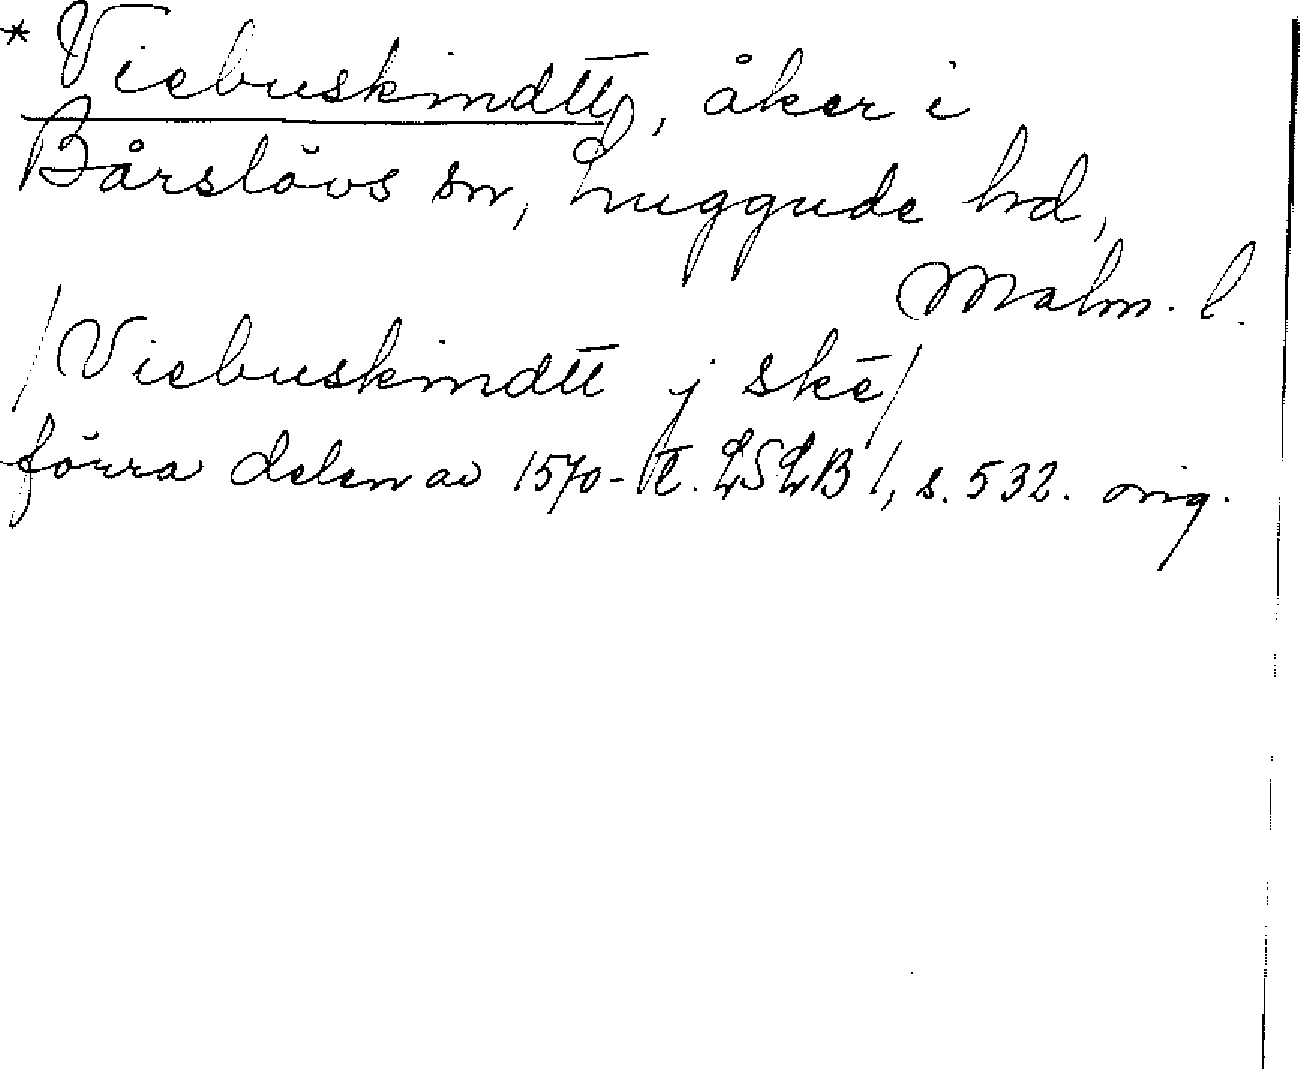 * Viebuskindtt, åker i
Bårslövs sn, Luggude hd,
Malm. l.
/Viebuskindtt j skē/
förra delen av 1570-t. LSLB 1, s. 532. orig.